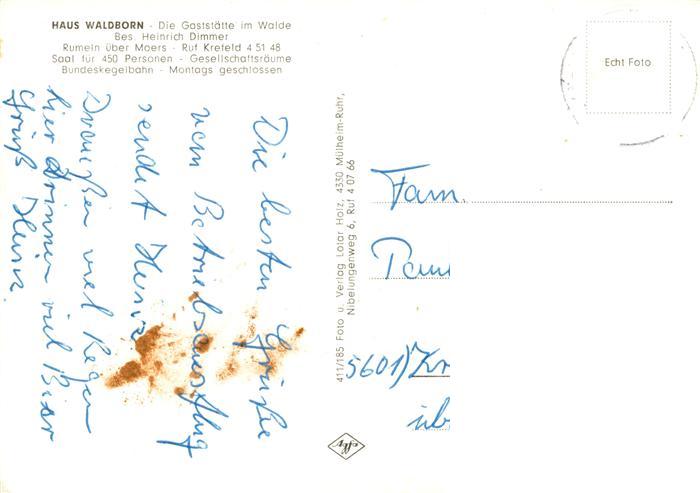 HAUS WALDBORN - Die Gaststätte im Walde
Bes. Heinrich Dimmer
Rumeln über Moers - Ruf Krefeld 4 51 48
Saal für 450 Personen - Gesellschaftsräume
Bundeskegelbahn - Montags geschlossen
Die besten Grüße
vom Betriebsausflug
sendet Heinz
Draußen viel Regen
hier drinnen viel Bier
Gruß Heinz.
411/185 Foto u. Verlag Lotar Holz, 4330 Mülheim-Ruhr,
Nibelungenweg 6, Ruf 4 07 66
Agfa
Echt Foto
Fam.
5601)